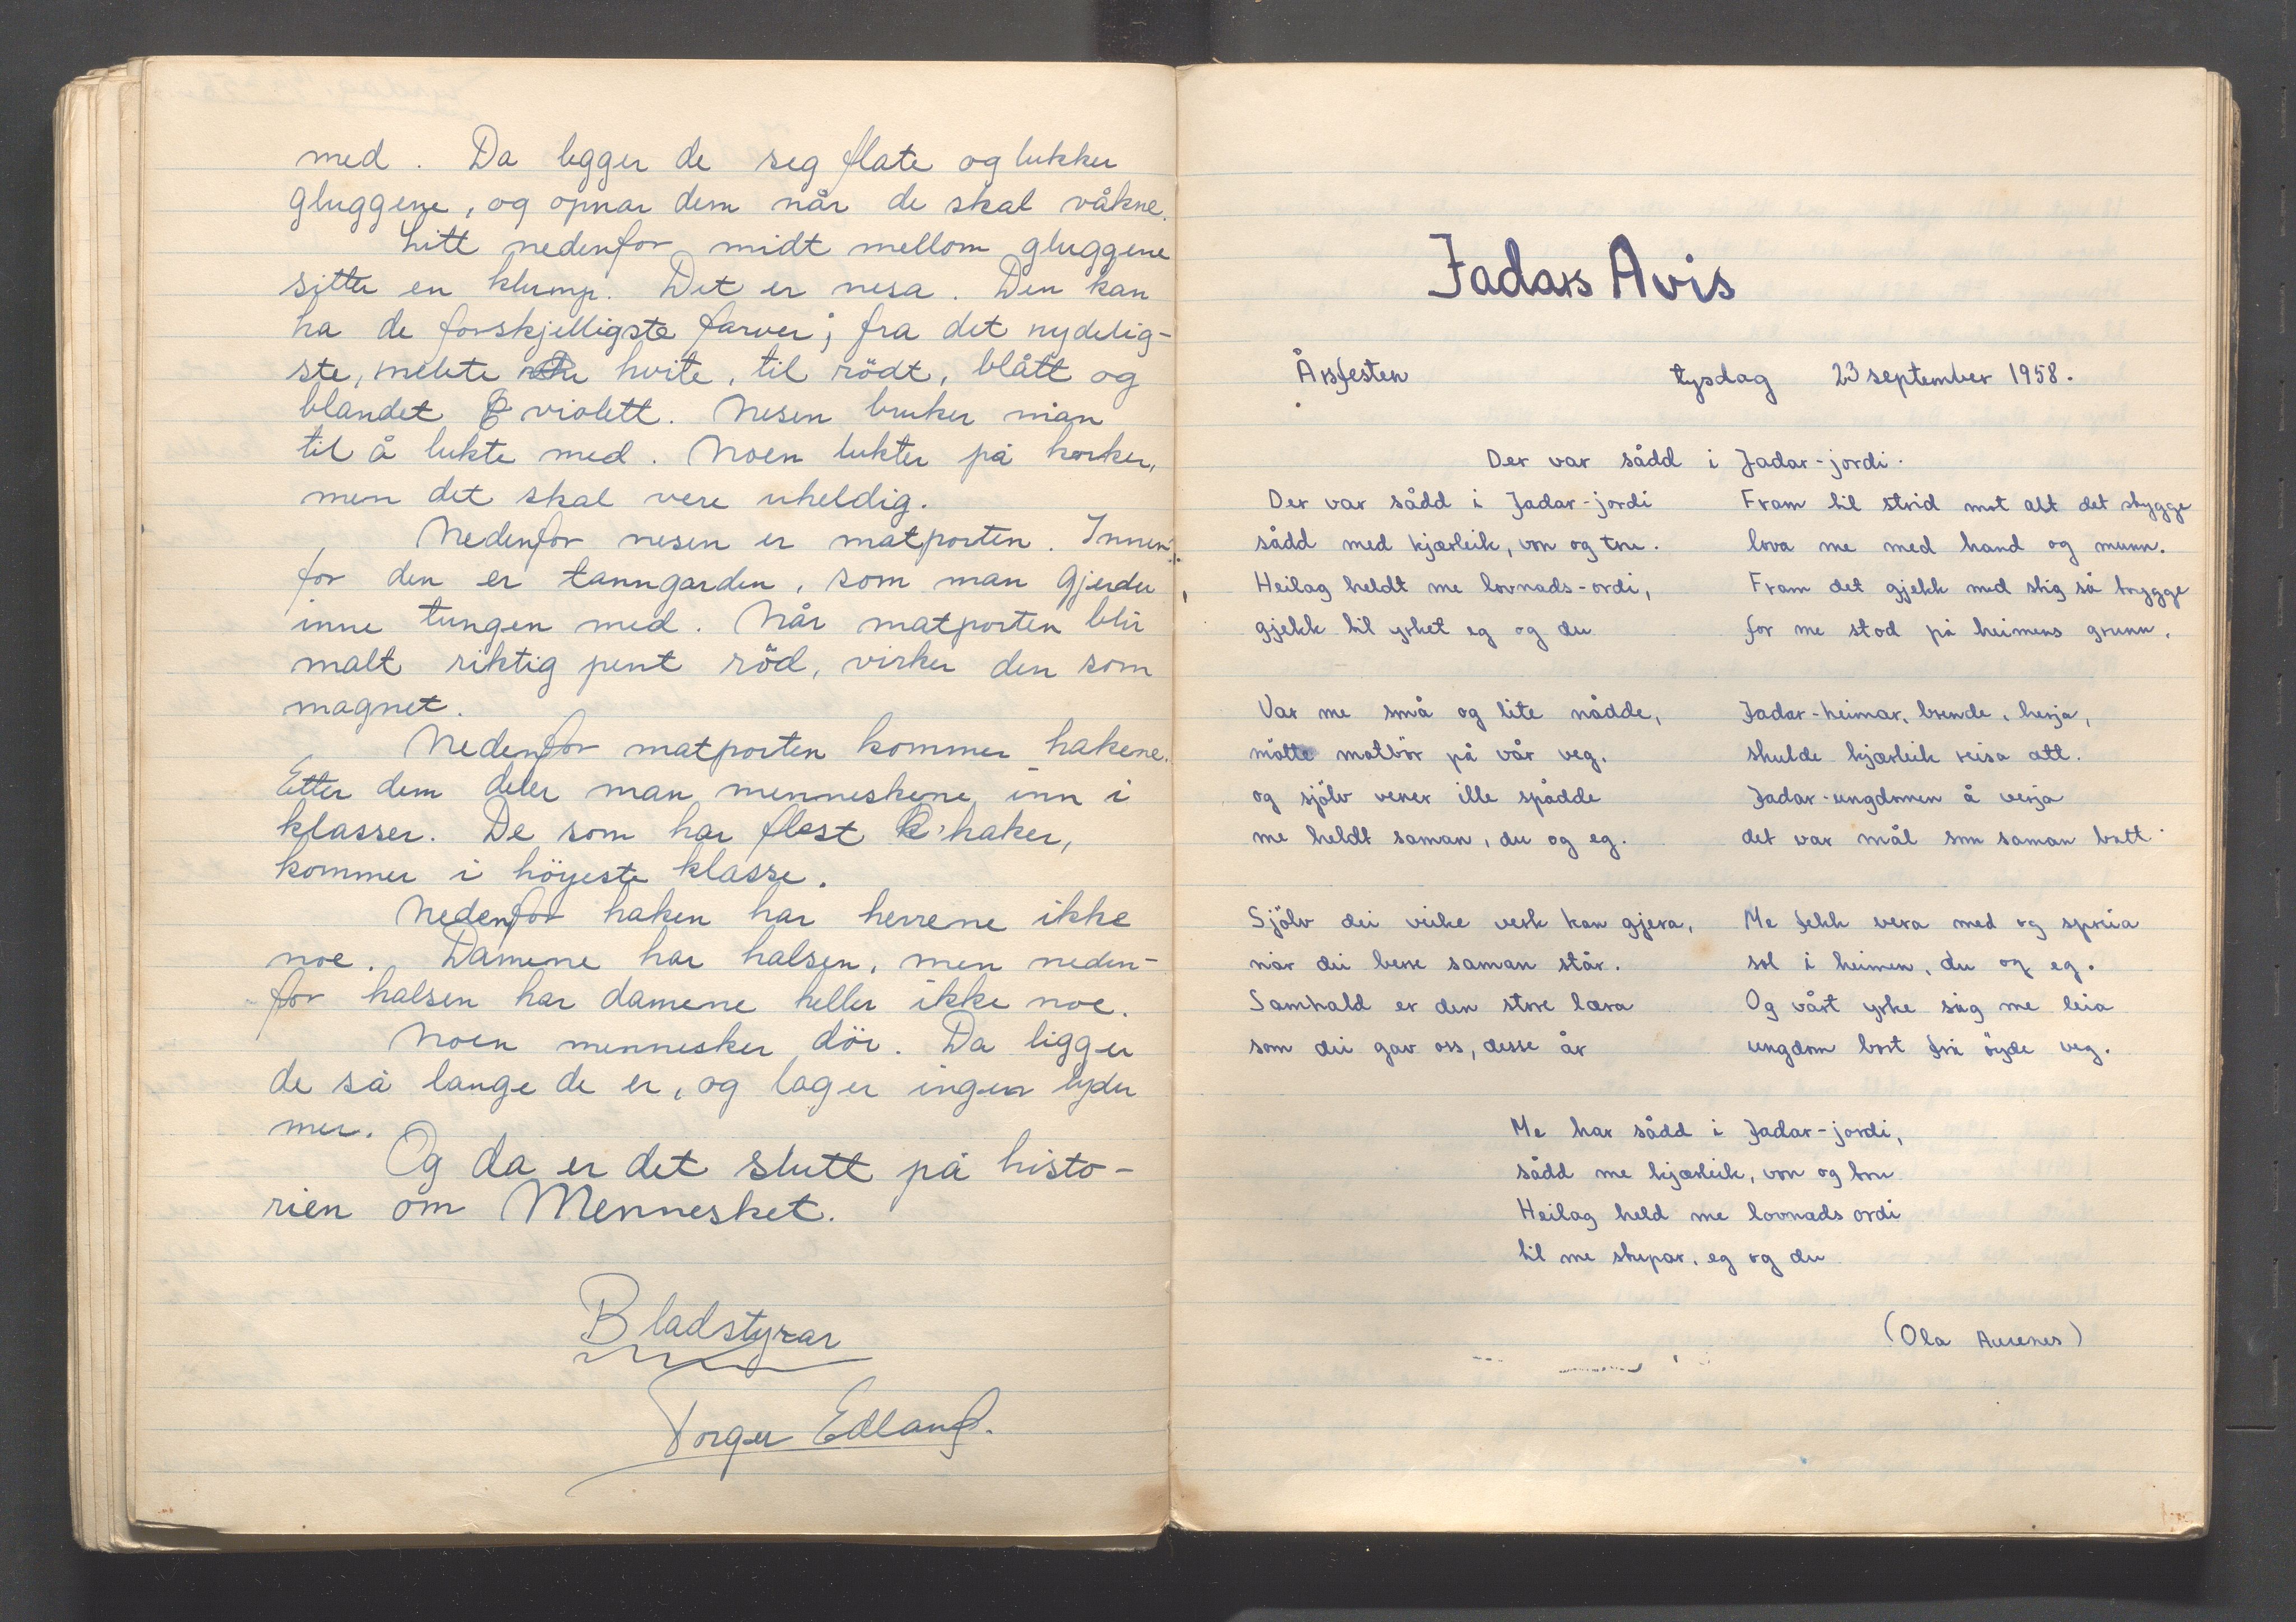 med. Da legger de seg flate og lukker
gluggene, og opnar dem når de skal våkne.
Litt nedenfor midt mellom gluggene
sitter en klump. Det er nesa. Den kan
ha de forskjelligste farver; fra det nydelig-
ste, melete hvite, til rödt, blått og
blandet violett. Nesen bruker man
til å lukte med. Noen lukter på korker,
men det skal vere uheldig.
Nedenfor nesen er matporten. Innen-
for den er tanngarden, som man gjerder
inne tungen med. Når matporten blir
malt riktig pent röd, virker den som
magnet.
Nedenfor matporten kommer hakene.
Etter dem deler man menneskene inn i
klasser. De som har flest haker,
kommer i höyeste klasse.
Nedenfor haken har herrene ikke
noe. Damene har halsen, men neden-
for halsen har damene heller ikke noe.
Noen mennesker dör. Da ligger
de så lange de er, og lager ingen lyder
mer.
Og da er det slutt på histo-
rien om Mennesket.
Bladstyrar
Torger Edland.
Jadars Avis
Årsfesten tysdag 23 september 1958.
Der var sådd i Jadar-jordi.
Der var sådd i Jadar-jordi
sådd med kjærleik, von og tru.
Heilag heldt me lovnads-ordi,
gjekk til yrket eg og du
Var me små og lite nådde,
måtte motbör på vår veg.
og sjölv vener ille spådde
me heldt saman, du og eg.
Sjölv dei veike verk kan gjera,
når dei berre saman står.
Samhald er den store læra
som dei gav oss, desse år
Fram til strid mot alt det stygge
lova me med hand og munn.
Fram det gjekk med stig så trygge
for me stod på heimens grunn.
Jadar-heimar, brende, herja,
skulde kjærleik reisa att.
Jadar-ungdomen å verja
det var mål som saman batt.
Me fekk vera med og spreia
sol i heimen, du og eg.
Og vårt yrke såg me leia
ungdom bort frå öyde veg.
Me har sådd i Jadar-jordi,
sådd me kjærleik, von og tru
Heilag held me lovnads ordi
til me stupar, eg og du
(Ola Aurenes)